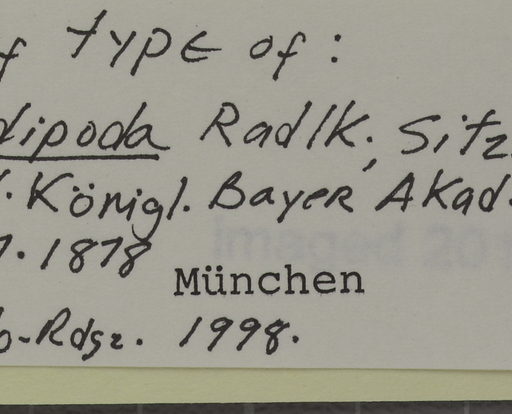 f type of:
lipoda Radlk., Sitz.
. Königl. Bayer Akad.
7. 1878
München
o-Rdgz. 1998.
imaged 20